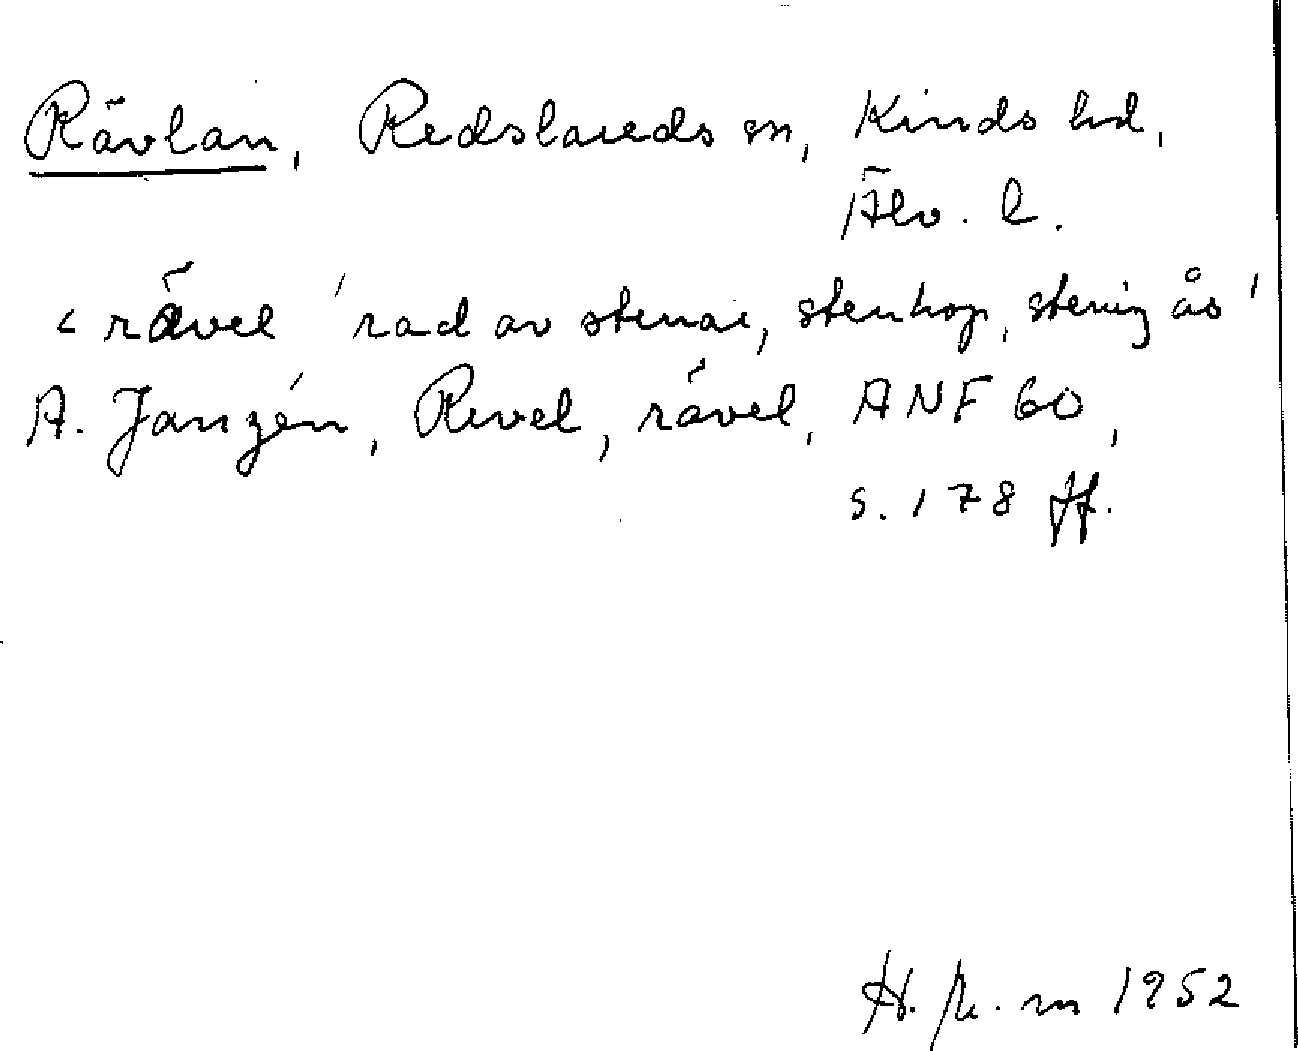 Rävlan, Redslareds sn, Kinds hd,
Älv. l.
< rävel 'rad av stenar, stenhop, stenig ås'
A. Janzén, Revel, rävel, ANF 60,
s. 178 ff.
1952